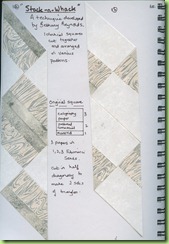 "Stack-n-Whack"
A technique developed
by Bethany Reynolds.
squares
cut together
and arranged
in various
patterns.
Original Square
calligraphy
paper
3 pieces of
1,2,3 Fibonacci
Series.
Cut in half
diagonally to
make 2 sets
of triangles.